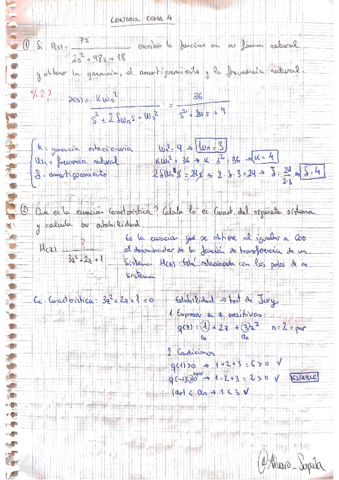 ① Si P(s) = 72 / 2s² + 48s + 18 escribir la función en su forma natural
y obtener la ganancia, el amortiguamiento y la frecuencia natural.
P(s) = KWn² / s² + 2δWns + Wn² = 36 / s² + 24s + 9
K = ganancia estacionaria
Wn² = 9 → Wn = 3
Wn = frecuencia natural
KWn² = 36 → K · 3² = 36 → K = 4
δ = amortiguamiento
2δWns = 24s → 2·δ·3 = 24 → δ = 24 / 2·3 → δ = 4
② Qué es la ecuación Característica? Calcula la ec Caract. del siguiente sistema
y calcula su estabilidad
Es la ecuación que se obtiene al igualar a cero
H(z) = 2 / 3z² + 2z + 1
el denominador de la función de transferencia de un
sistema H(z). Está relacionada con los polos de un
sistema.
Ec Característica: 3z² + 2z + 1 = 0
Estabilidad → test de Jury
1 Expresar en z positivas:
q(z) = 1 + 2z + 3z² n = 2 = par
a₀ aₙ
2 Condiciones
q(1) > 0 → 1 + 2 + 3 = 6 > 0 √
q(-1) > 0 → 1 - 2 + 3 = 2 > 0 √ ESTABLE
|a₀| < aₙ → 1 < 3 √